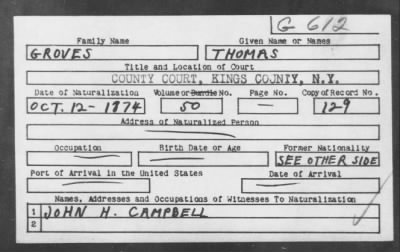 G 612
Family Name Given Name or Names
GROVES THOMAS
Title and Location of Court
COUNTY COURT, KINGS COUNTY, N.Y.
Date of Naturalization Volume or Bundle No. Page No. Copy of Record No.
OCT. 12-1874 50 — 129
Address of Naturalized Person
Occupation Birth Date or Age Former Nationality
SEE OTHER SIDE
Port of Arrival in the United States Date of Arrival
Names, Addresses and Occupations of Witnesses To Naturalization
1 JOHN H. CAMPBELL
2